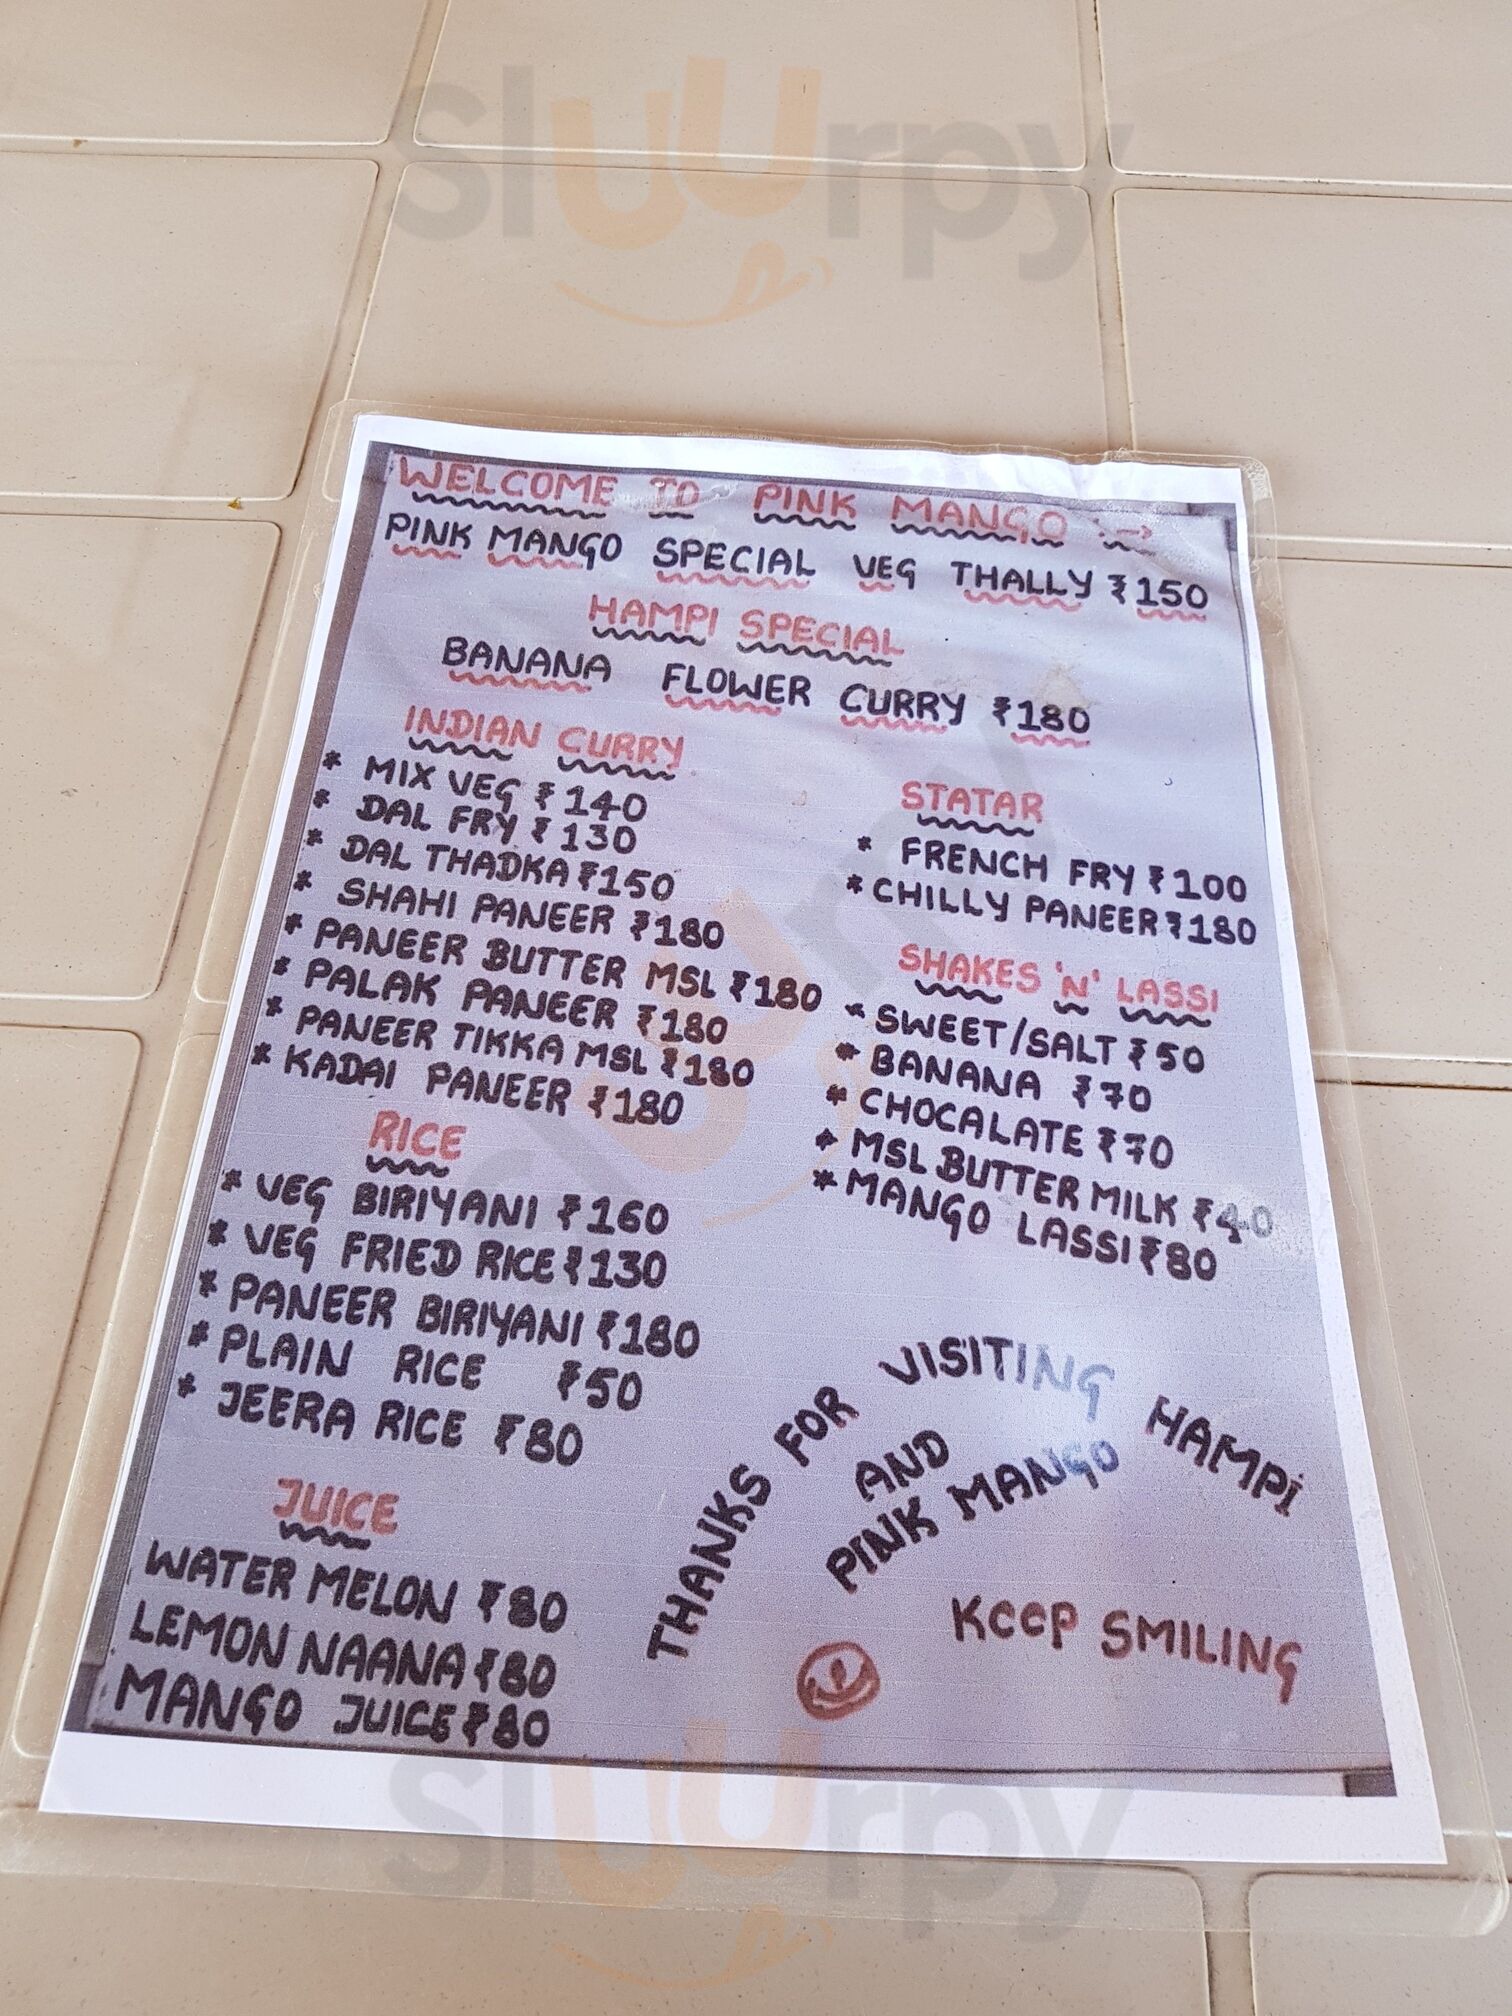 sluurpy
WELCOME TO PINK MANGO :→
PINK MANGO SPECIAL VEG THALLY ₹150
HAMPI SPECIAL
BANANA FLOWER CURRY ₹180
INDIAN CURRY
* MIX VEG ₹140
* DAL FRY ₹130
* DAL THADKA ₹150
* SHAHI PANEER ₹180
* PANEER BUTTER MSL ₹180
* PALAK PANEER ₹180
* PANEER TIKKA MSL ₹180
* KADAI PANEER ₹180
RICE
* VEG BIRIYANI ₹160
* VEG FRIED RICE ₹130
* PANEER BIRIYANI ₹180
* PLAIN RICE ₹50
* JEERA RICE ₹80
JUICE
WATER MELON ₹80
LEMON NAANA ₹80
MANGO JUICE ₹80
STATAR
* FRENCH FRY ₹100
* CHILLY PANEER ₹180
SHAKES 'N' LASSI
* SWEET/SALT ₹50
* BANANA ₹70
* CHOCALATE ₹70
* MSL BUTTER MILK ₹40
* MANGO LASSI ₹80
THANKS FOR VISITING HAMPI
AND
PINK MANGO
KEEP SMILING
sluurpy
sluurpy